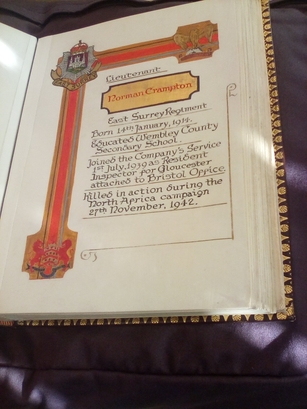 Lieutenant
Norman Crampton
East Surrey Regiment
Born 14th January, 1914.
Educated Wembley County
Secondary School.
Joined the Company's Service
1st July, 1939 as Resident
Inspector for Gloucester
attached to Bristol Office
Killed in action during the
North Africa campaign
27th November, 1942.